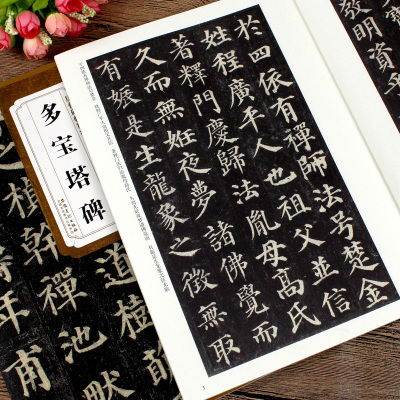 發明資乎
於四依有禪師法号楚金
姓程廣平人也祖父並信
著釋門慶歸法胤母高氏
久而無姙夜夢諸佛覺而
有娠是生龍象之徵無取
多宝塔碑
道樹
之楨幹禪池畎
年甫